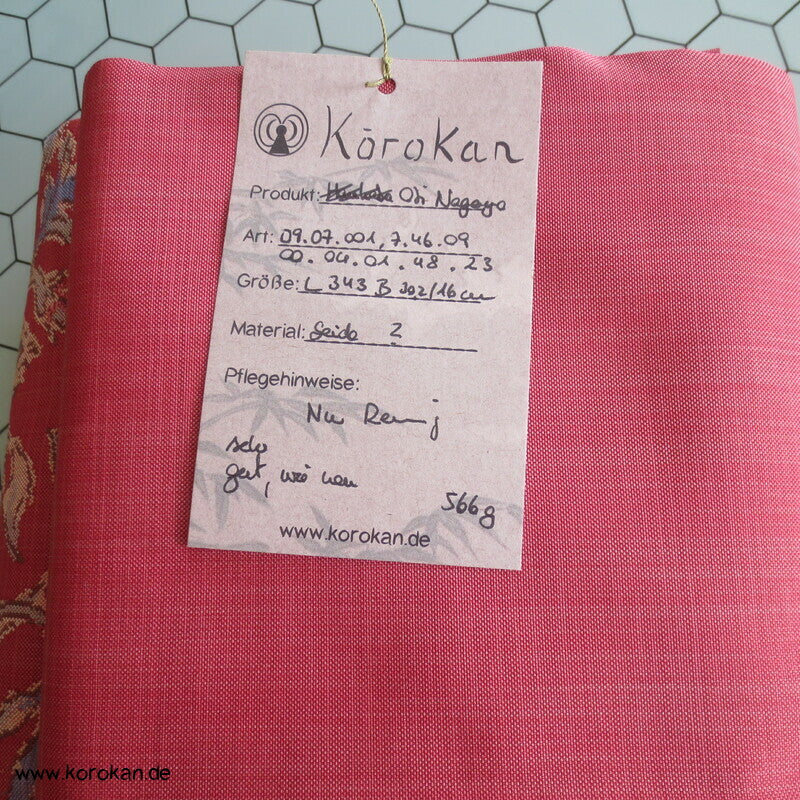 KōroKan
Produkt: Obi Nagoya
Art: 09.07.001, 7.46.09
00.04.01.48.23
Größe: L 343 B 30,2/16 cm
Material: Seide 2
Pflegehinweise:
Nur
sehr
gut, wie neu
566g
www.korokan.de
www.korokan.de